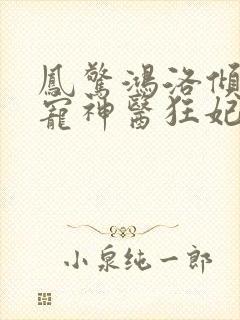 鳳驚鴻洛傾
寵神醫狂妃
小泉純一郎